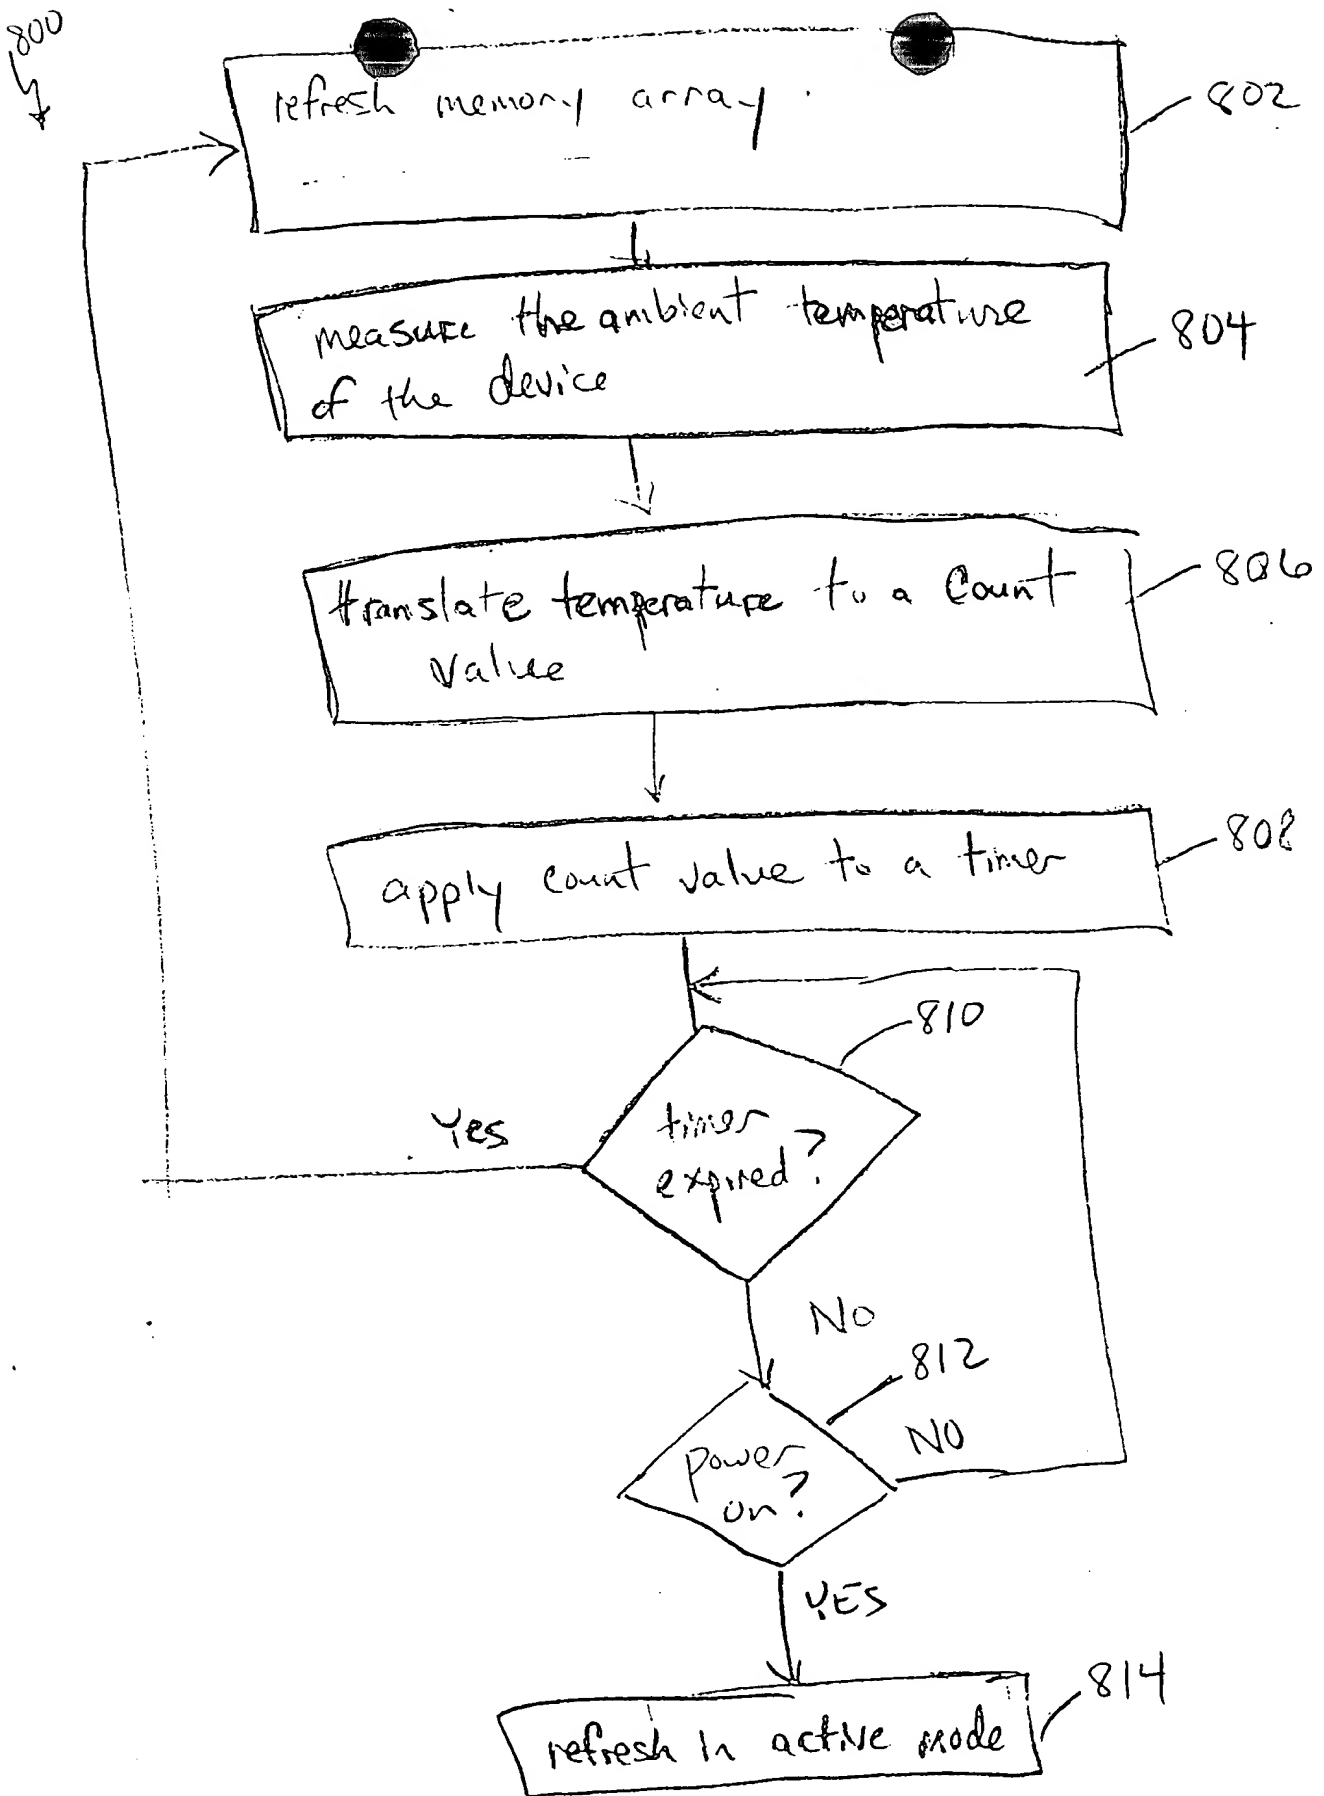 800
refresh memory array
802
measure the ambient temperature
of the device
804
translate temperature to a count
value
806
apply count value to a timer
808
810
timer
expired?
Yes
NO
812
power
on?
NO
YES
refresh in active mode
814